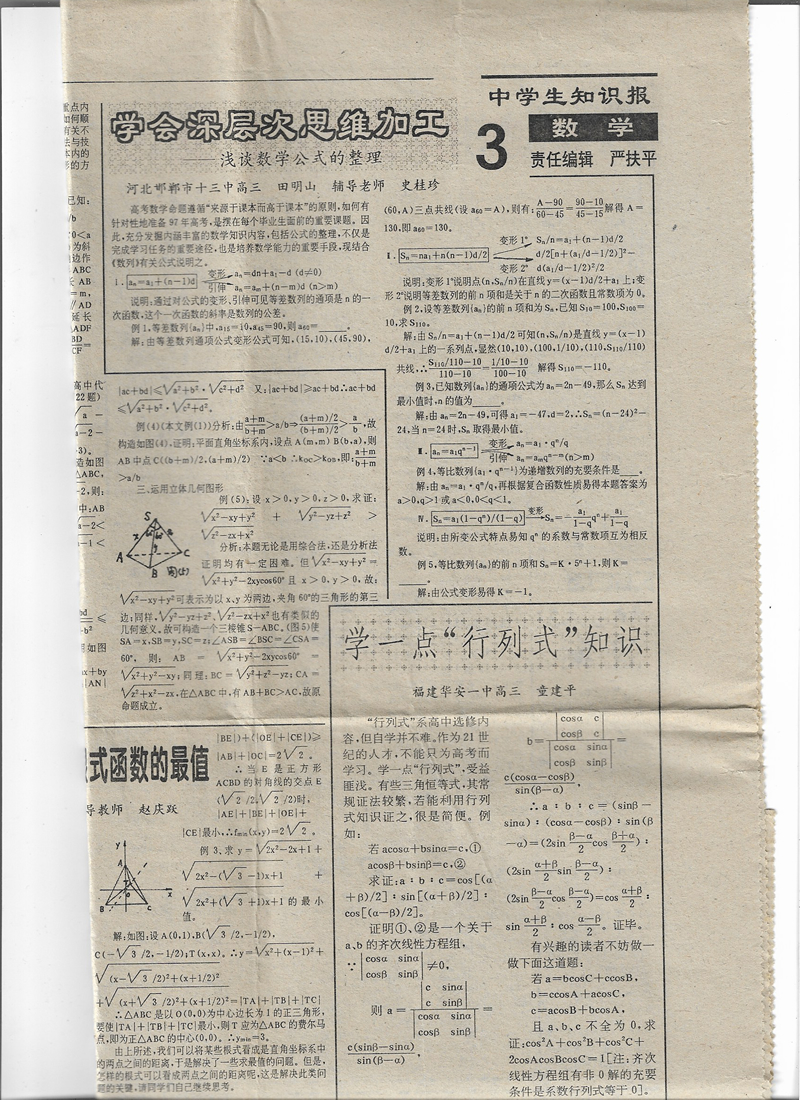 中学生知识报
3
数学
责任编辑 严扶平
学会深层次思维加工
——浅谈数学公式的整理
河北邯郸市十三中高三 田明山 辅导老师 史桂珍
高考数学命题遵循“来源于课本而高于课本”的原则,如何有
针对性地准备97年高考,是摆在每个毕业生面前的重要课题。因
此,充分发掘内涵丰富的数学知识内容,包括公式的整理,不仅是
完成学习任务的重要途径,也是培养数学能力的重要手段,现结合
《数列》有关公式说明之。
Ⅰ. aₙ=a₁+(n-1)d 变形 aₙ=dn+a₁-d (d≠0)
引伸 aₙ=aₘ+(n-m)d (n>m)
说明:通过对公式的变形、引伸可见等差数列的通项是 n 的一
次函数,这个一次函数的斜率是数列的公差。
例1,等差数列{aₙ}中,a₁₅=10,a₄₅=90,则a₆₀=____。
解:由等差数列通项公式变形公式可知,(15,10),(45,90),
(60,A)三点共线(设a₆₀=A),则有:(A-90)/(60-45)=(90-10)/(45-15)解得A=
130,即a₆₀=130。
Ⅱ. Sₙ=na₁+n(n-1)d/2 变形1° Sₙ/n=a₁+(n-1)d/2
变形2° d/2[n+(a₁/d-1/2)]²-
d(a₁/d-1/2)²/2
说明:变形1°说明点(n,Sₙ/n)在直线y=(x-1)d/2+a₁上;变
形2°说明等差数列的前n项和是关于n的二次函数且常数项为0。
例2,设等差数列{aₙ}的前n项和为Sₙ,已知S₁₀=100,S₁₀₀=
10,求S₁₁₀。
解:由Sₙ/n=a₁+(n-1)d/2可知(n,Sₙ/n)是直线y=(x-1)
d/2+a₁上的一系列点,显然(10,10),(100,1/10),(110,S₁₁₀/110)
共线,∴(S₁₁₀/110-10)/(110-10)=(1/10-10)/(100-10) 解得S₁₁₀=-110。
例3,已知数列{aₙ}的通项公式为aₙ=2n-49,那么Sₙ达到
最小值时,n的值为____。
解:由aₙ=2n-49,可得a₁=-47,d=2,∴Sₙ=(n-24)²-
24,当n=24时,Sₙ取得最小值。
Ⅲ. aₙ=a₁qⁿ⁻¹ 变形 aₙ=a₁·qⁿ/q
引伸 aₙ=aₘqⁿ⁻ᵐ(n>m)
例4,等比数列{a₁·qⁿ⁻¹}为递增数列的充要条件是____。
解:由aₙ=a₁·qⁿ/q,再根据复合函数性质易得本题答案为
a>0,q>1或a<0,0<q<1。
Ⅳ. Sₙ=a₁(1-qⁿ)/(1-q) 变形 Sₙ=-a₁/(1-q)qⁿ+a₁/(1-q)
说明:由所变公式特点易知qⁿ的系数与常数项互为相反
数。
例5,等比数列{aₙ}的前n项和Sₙ=K·5ⁿ+1,则K=
____。
解:由公式变形易得K=-1。
|ac+bd|≤√a²+b²·√c²+d² 又:|ac+bd|≥ac+bd∴ac+bd
≤√a²+b²·√c²+d²。
例(4)(本文例(1))分析:由(a+m)/(b+m)>a/b⇒((a+m)/2)/((b+m)/2)>a/b,故
构造如图(4),证明:平面直角坐标系内,设点A(m,m)B(b,a),则
AB中点C((b+m)/2,(a+m)/2) ∵a<b ∴kOC>kOB,即:(a+m)/(b+m)
>a/b
三、运用立体几何图形
例(5):设x>0,y>0,z>0,求证:
√x²-xy+y² + √y²-yz+z² >
√z²-zx+x²
分析:本题无论是用综合法,还是分析法
证明均有一定困难。但√x²-xy+y²=
√x²+y²-2xycos60°且x>0,y>0,故:
√x²-xy+y²可表示为以x、y为两边,夹角60°的三角形的第三
边;同样,√y²-yz+z²、√z²-zx+x²也有类似的
几何意义。故可构造一个三棱锥S-ABC。(图5)使
SA=x,SB=y,SC=z;∠ASB=∠BSC=∠CSA=
60°, 则: AB = √x²+y²-2xycos60° =
√x²+y²-xy;同理:BC=√y²+z²-yz;CA=
√z²+x²-zx,在△ABC中,有AB+BC>AC,故原
命题成立。
式函数的最值
导教师 赵庆跃
|BE|)+(|OE|+|CE|)≥
|AB|+|OC|=2√2。
∴当E是正方形
ACBD的对角线的交点E
(√2/2,√2/2)时,
|AE|+|BE|+|OE|+
|CE|最小,∴fmin(x,y)=2√2。
例3、求y=√2x²-2x+1+
√2x²-(√3-1)x+1 +
√2x²+(√3+1)x+1 的最小
值。
解:如图:设A(0,1),B(√3/2,-1/2),
C(-√3/2,-1/2);T(x,x)。∴y=√x²+(x-1)²+
√(x-√3/2)²+(x+1/2)²
+√(x+√3/2)²+(x+1/2)²=|TA|+|TB|+|TC|
∴△ABC是以O(0,0)为中心边长为1的正三角形,
要使|TA|+|TB|+|TC|最小,则T应为△ABC的费尔马
点,即为正△ABC的中心(0,0)。∴ymin=3。
由上所述,我们可以将某些根式看成是直角坐标系中
的两点之间的距离,于是解决了一些求最值的问题。但是,
怎样的根式可以看成两点之间的距离呢,这是解决此类问
题的关键,请同学们自己继续思考。
学一点“行列式”知识
福建华安一中高三 童建平
“行列式”系高中选修内
容,但自学并不难。作为21世
纪的人才,不能只为高考而
学习。学一点“行列式”,受益
匪浅。有些三角恒等式,其常
规证法较繁,若能利用行列
式知识证之,很是简便。例
如:
若acosα+bsinα=c,①
acosβ+bsinβ=c,②
求证:a:b:c=cos[(α
+β)/2]:sin[(α+β)/2]:
cos[(α-β)/2]。
证明①、②是一个关于
a、b的齐次线性方程组,
∵|cosα sinα|
|cosβ sinβ|≠0,
则a=|c sinα|
|c sinβ|
|cosα sinα|
|cosβ sinβ|=
c(sinβ-sinα)/sin(β-α),
b=|cosα c|
|cosβ c|
|cosα sinα|
|cosβ sinβ|=
c(cosα-cosβ)/sin(β-α),
∴a:b:c=(sinβ-
sinα):(cosα-cosβ):sin(β
-α)=(2sin(β-α)/2 cos(β+α)/2):
(2sin(α+β)/2 sin(β-α)/2):
(2sin(β-α)/2 cos(β-α)/2)=cos(α+β)/2:
sin(α+β)/2:cos(α-β)/2。证毕。
有兴趣的读者不妨做一
做下面这道题:
若a=bcosC+ccosB,
b=ccosA+acosC,
c=acosB+bcosA,
且a、b、c不全为0,求
证:cos²A+cos²B+cos²C+
2cosAcosBcosC=1[注:齐次
线性方程组有非0解的充要
条件是系数行列式等于0]。